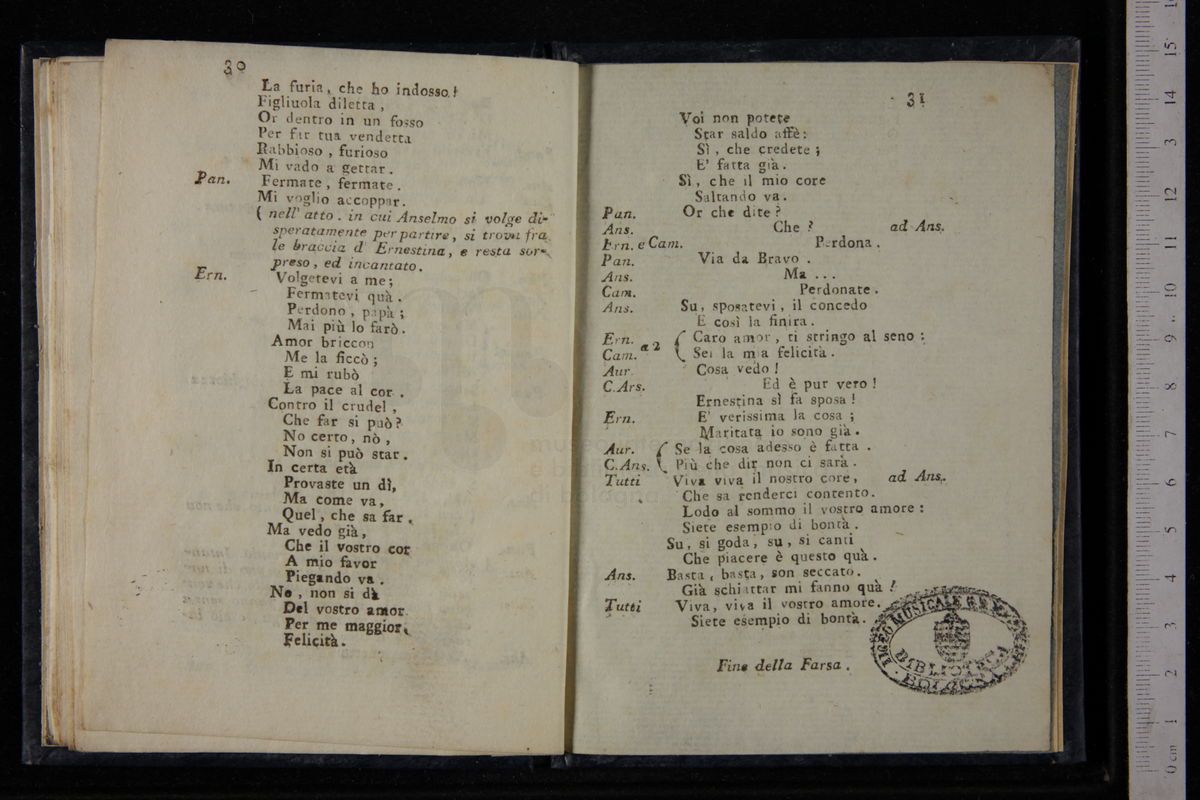 30
La furia, che ho indosso!
Figliuola diletta,
Or dentro in un fosso
Per far tua vendetta
Rabbioso, furioso
Mi vado a gettar.
Pan. Fermate, fermate.
Mi voglio accoppar.
( nell' atto. in cui Anselmo si volge di-
speratamente per partire, si trova fra
le braccia d' Ernestina, e resta sor-
preso, ed incantato.
Ern. Volgetevi a me;
Fermatevi quà.
Perdono, papà;
Mai più lo farò.
Amor briccon
Me la ficcò;
E mi rubò
La pace al cor.
Contro il crudel,
Che far si può?
No certo, nò,
Non si può star.
In certa età
Provaste un dì,
Ma come va,
Quel, che sa far.
Ma vedo già,
Che il vostro cor
A mio favor
Piegando va.
No, non si dà
Del vostro amor
Per me maggior
Felicità.
31
Voi non potete
Star saldo affè:
Sì, che credete;
E' fatta già.
Sì, che il mio core
Saltando va.
Pan. Or che dite?
Ans. Che? ad Ans.
Ern. e Cam. Perdona.
Pan. Via da Bravo.
Ans. Ma ...
Cam. Perdonate.
Ans. Su, sposatevi, il concedo
E così la finirà.
Ern. a 2 ( Caro amor, ti stringo al seno:
Cam. ( Sei la mia felicità.
Aur. Cosa vedo!
C.Ars. Ed è pur vero!
Ernestina sì fa sposa!
Ern. E' verissima la cosa;
Maritata io sono già.
Aur. ( Se la cosa adesso è fatta.
C.Ans. ( Più che dir non ci sarà.
Tutti Viva viva il nostro core, ad Ans.
Che sa renderci contento.
Lodo al sommo il vostro amore:
Siete esempio di bontà.
Su, si goda, su, si canti
Che piacere è questo quà.
Ans. Basta, basta, son seccato.
Già schiattar mi fanno quà!
Tutti Viva, viva il vostro amore.
Siete esempio di bontà.
Fine della Farsa.
LICEO MUSICALE
BIBLIOTECA
BOLOGNA
museo
di bologna
0 cm 1 2 3 4 5 6 7 8 9 10 11 12 13 14 15